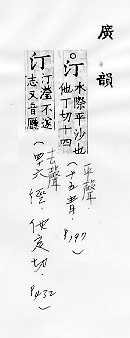 廣韻
汀水際平沙也
他丁切十四
平聲
（十五青）
P.197
汀汀瀅不遂
志又音廳
去聲
（四十六徑 他定切）
P.432